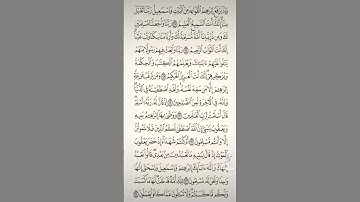 وَإِذْ يَرْفَعُ إِبْرَٰهِـۧمُ ٱلْقَوَاعِدَ مِنَ ٱلْبَيْتِ وَإِسْمَٰعِيلُ رَبَّنَا تَقَبَّلْ
مِنَّآ إِنَّكَ أَنتَ ٱلسَّمِيعُ ٱلْعَلِيمُ ١٢٧ رَبَّنَا وَٱجْعَلْنَا مُسْلِمَيْنِ
لَكَ وَمِن ذُرِّيَّتِنَآ أُمَّةً مُّسْلِمَةً لَّكَ وَأَرِنَا مَنَاسِكَنَا وَتُبْ عَلَيْنَآ
إِنَّكَ أَنتَ ٱلتَّوَّابُ ٱلرَّحِيمُ ١٢٨ رَبَّنَا وَٱبْعَثْ فِيهِمْ رَسُولًا مِّنْهُمْ
يَتْلُوا۟ عَلَيْهِمْ ءَايَٰتِكَ وَيُعَلِّمُهُمُ ٱلْكِتَٰبَ وَٱلْحِكْمَةَ
وَيُزَكِّيهِمْ إِنَّكَ أَنتَ ٱلْعَزِيزُ ٱلْحَكِيمُ ١٢٩ وَمَن يَرْغَبُ عَن مِّلَّةِ
إِبْرَٰهِـۧمَ إِلَّا مَن سَفِهَ نَفْسَهُۥ وَلَقَدِ ٱصْطَفَيْنَٰهُ فِى ٱلدُّنْيَا
وَإِنَّهُۥ فِى ٱلْءَاخِرَةِ لَمِنَ ٱلصَّٰلِحِينَ ١٣٠ إِذْ قَالَ لَهُۥ رَبُّهُۥٓ أَسْلِمْ
قَالَ أَسْلَمْتُ لِرَبِّ ٱلْعَٰلَمِينَ ١٣١ وَوَصَّىٰ بِهَآ إِبْرَٰهِـۧمُ بَنِيهِ
وَيَعْقُوبُ يَٰبَنِىَّ إِنَّ ٱللَّهَ ٱصْطَفَىٰ لَكُمُ ٱلدِّينَ فَلَا تَمُوتُنَّ
إِلَّا وَأَنتُم مُّسْلِمُونَ ١٣٢ أَمْ كُنتُمْ شُهَدَآءَ إِذْ حَضَرَ يَعْقُوبَ
ٱلْمَوْتُ إِذْ قَالَ لِبَنِيهِ مَا تَعْبُدُونَ مِنۢ بَعْدِى قَالُوا۟ نَعْبُدُ
إِلَٰهَكَ وَإِلَٰهَ ءَابَآئِكَ إِبْرَٰهِـۧمَ وَإِسْمَٰعِيلَ وَإِسْحَٰقَ إِلَٰهًا
وَٰحِدًا وَنَحْنُ لَهُۥ مُسْلِمُونَ ١٣٣ تِلْكَ أُمَّةٌ قَدْ خَلَتْ لَهَا مَا كَسَبَتْ
وَلَكُم مَّا كَسَبْتُمْ وَلَا تُسْـَٔلُونَ عَمَّا كَانُوا۟ يَعْمَلُونَ ١٣٤